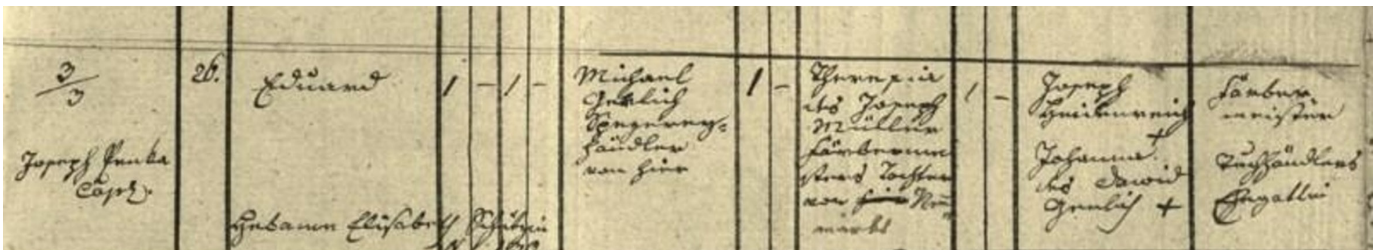 3/3
Joseph Penka
Cap.
26.
Eduard
Hebamm Elisabeth
1 - 1 -
Michael
Gerlich
Spezerey-
händler
von hier
1 -
Theresia
des Joseph
Müller
Färbermei
sters Tochter
von hier Neu
markt
1 -
Joseph
Heidenreich
+
Johanna
des David
Gerlich +
Färber
meister
Tuchhändlers
Ehegattin